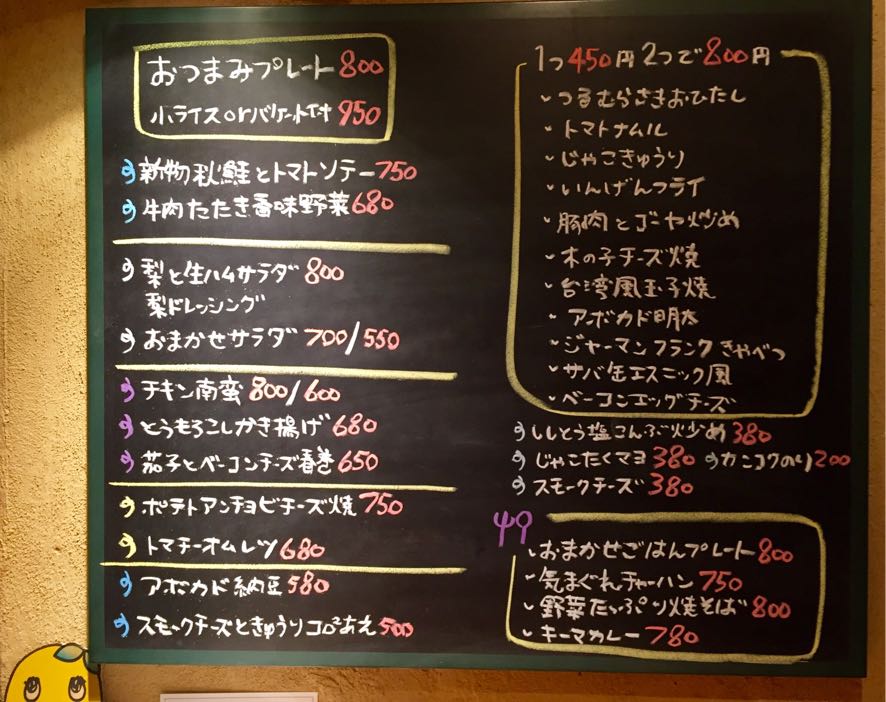 おつまみプレート 800
小ライスorバケット付 950
新物秋鮭とトマトソテー 750
牛肉たたき香味野菜 680
梨と生ハムサラダ 800
梨ドレッシング
おまかせサラダ 700/550
チキン南蛮 800/600
とうもろこしかき揚げ 680
茄子とベーコンチーズ春巻 650
ポテトアンチョビチーズ焼 750
トマチーオムレツ 680
アボカド納豆 580
スモークチーズときゅうりコロコロあえ 500
1つ450円 2つで800円
つるむらさきおひたし
トマトナムル
じゃこきゅうり
いんげんフライ
豚肉とゴーヤ炒め
木の子チーズ焼
台湾風玉子焼
アボカド明太
ジャーマンフランクきゃべつ
サバ缶エスニック風
ベーコンエッグチーズ
ししとう塩こんぶ炒め 380
じゃこたくマヨ 380 カンコクのり 200
スモークチーズ 380
おまかせごはんプレート 800
気まぐれチャーハン 750
野菜たっぷり焼そば 800
キーマカレー 780